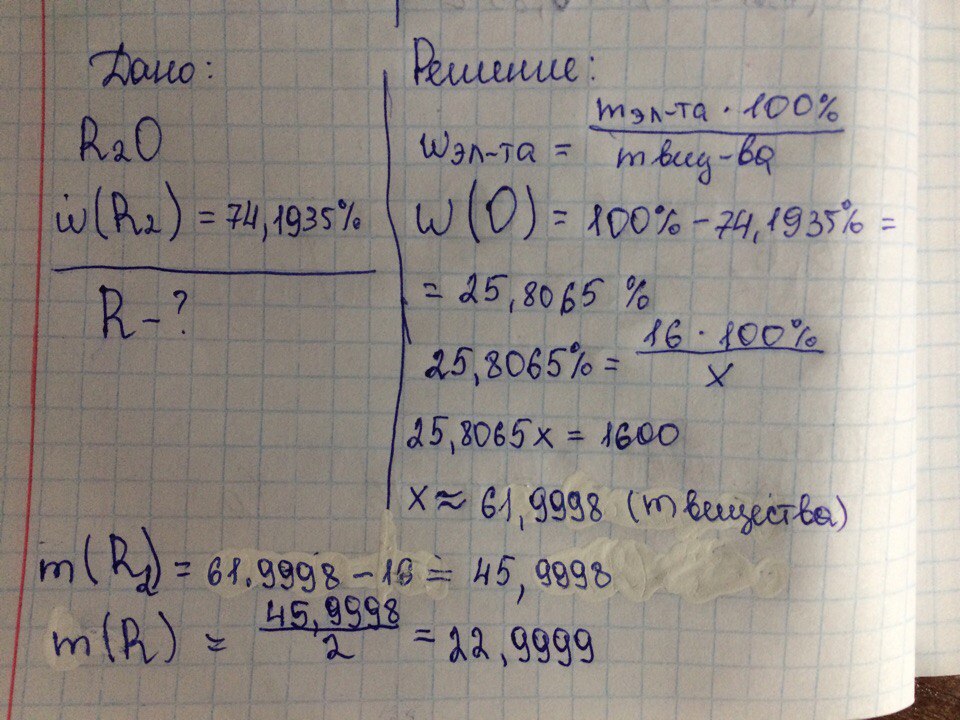 Дано:
R₂O
w(R₂) = 74,1935%
R - ?
Решение:
wэл-та = mэл-та · 100% / mвещ-ва
w(O) = 100% - 74,1935% =
= 25,8065 %
25,8065% = 16 · 100% / x
25,8065x = 1600
x ≈ 61,9998 (m вещества)
m(R₂) = 61.9998 - 16 = 45,9998
m(R) = 45,9998 / 2 = 22,9999